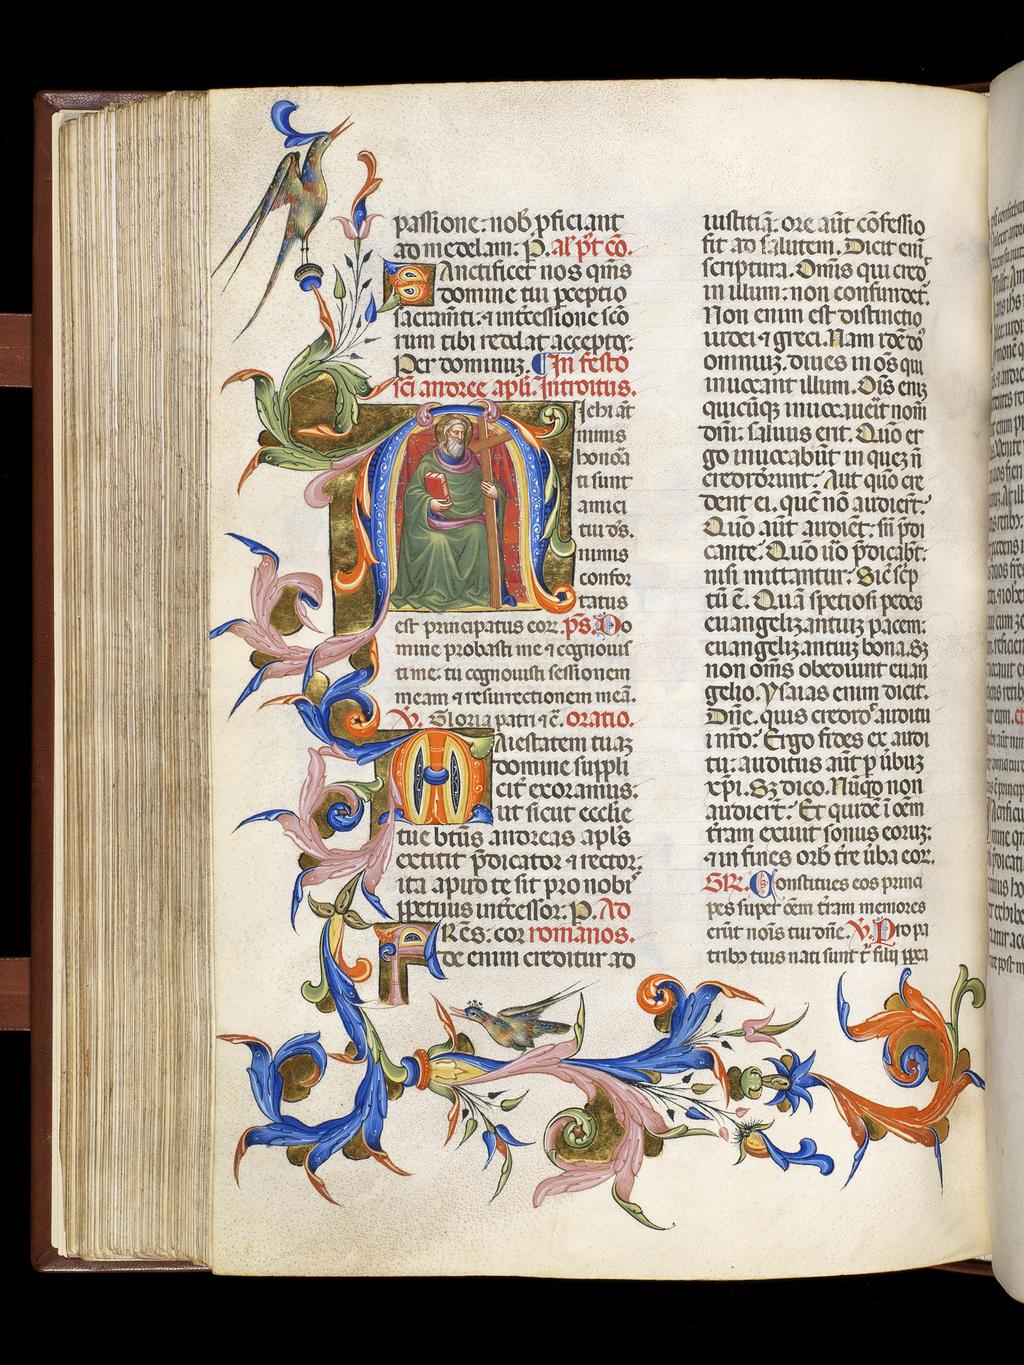 passione: nob̅ p̱ficiant
ad medelam: P. al' p̾t co̅.
Sanctificet nos q̅m̅s
domine tui p̱ceptio
sacram̅ti: ⁊ int̾cessione sc̅o
rum tibi reddat acceptoꝝ:
Per dominuꝫ. In festo
sc̅i andree ap̅li. Introitus.
Michi au̅t
nimis
honora
ti sunt
amici
tui d̅s.
nimis
confor
tatus
est principatus eoꝝ. p̅s. Do
mine probasti me ⁊ cognouis
ti me: tu cognouisti sessionem
meam ⁊ resurrectionem mea̅.
V. Gloria patri ⁊c̅. oratio.
Maiestatem tuaꝫ
domine suppli
cit̾ exoramus:
ut sicut ecclie
tue bt̅us andreas ap̅l's
extitit p̅dicator ⁊ rector:
ita apud te sit pro nobis
p̱petuus int̾cessor: P. Ad
FRe̅s. cor romanos.
de enim creditur ad
iustitia̅: ore au̅t co̅fessio
fit ad salutem. Dicit eni̅
scriptura. Om̅is qui credᵗ
in illum: non confundet̾.
Non enim est distinctio
iudei ⁊ greci. Nam ide̅ d̅o̅
omniuꝫ. diues in o̅s qui
inuocant illum. O̅is eniꝫ
quicu̅qꝫ inuocauerit nom̅
do̅ni: saluus erit. Quo̅ er
go inuocabu̅t in queꝫ n̅
crediderunt: Aut quo̅ cre
dent ei. que̅ no̅ audier̅t:
Quo̅ au̅t audie̅t: sn̅ p̅di
cante: Quo̅ u̅o p̅dicabt̅:
nisi mittantur: Sic̅ sc̅p
tu̅ e̅. Qua̅ speciosi pedes
euangeliꝫantiuꝫ pacem:
euangeliꝫantiuꝫ bona. Sꝫ
non om̅s obediunt euan
gelio. ysaias enim dicit.
Dn̅e. quis credidᵗ auditu
i nr̅o: Ergo fides ex audi
tu: auditus au̅t p̱ u̅buꝫ
xp̅i. Sꝫ dico. Nu̅qd non
audier̅t: Et quide̅ i̅ oe̅m
t̾ram exiuit sonus eoruꝫ:
⁊ in fines orb̅ t̾re u̅ba eoꝝ.
GR. Constitues eos princi
pes super oe̅m t̾ram memores
eru̅t no̅is tui dn̅e. V. Pro pa
tribꝫ tuis nati sunt t̾ filij p̱pea